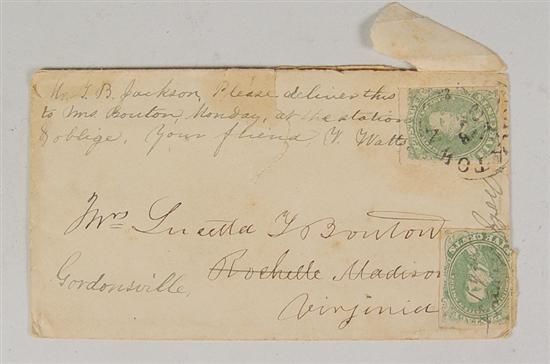 Mr. T. B. Jackson, Please deliver this
to Mrs Bouton, Monday, at the station
& oblige, Your friend, Y. Watts
Mrs Lucetta T Bouton
Rochelle Madison
Gordonsville,
Virginia